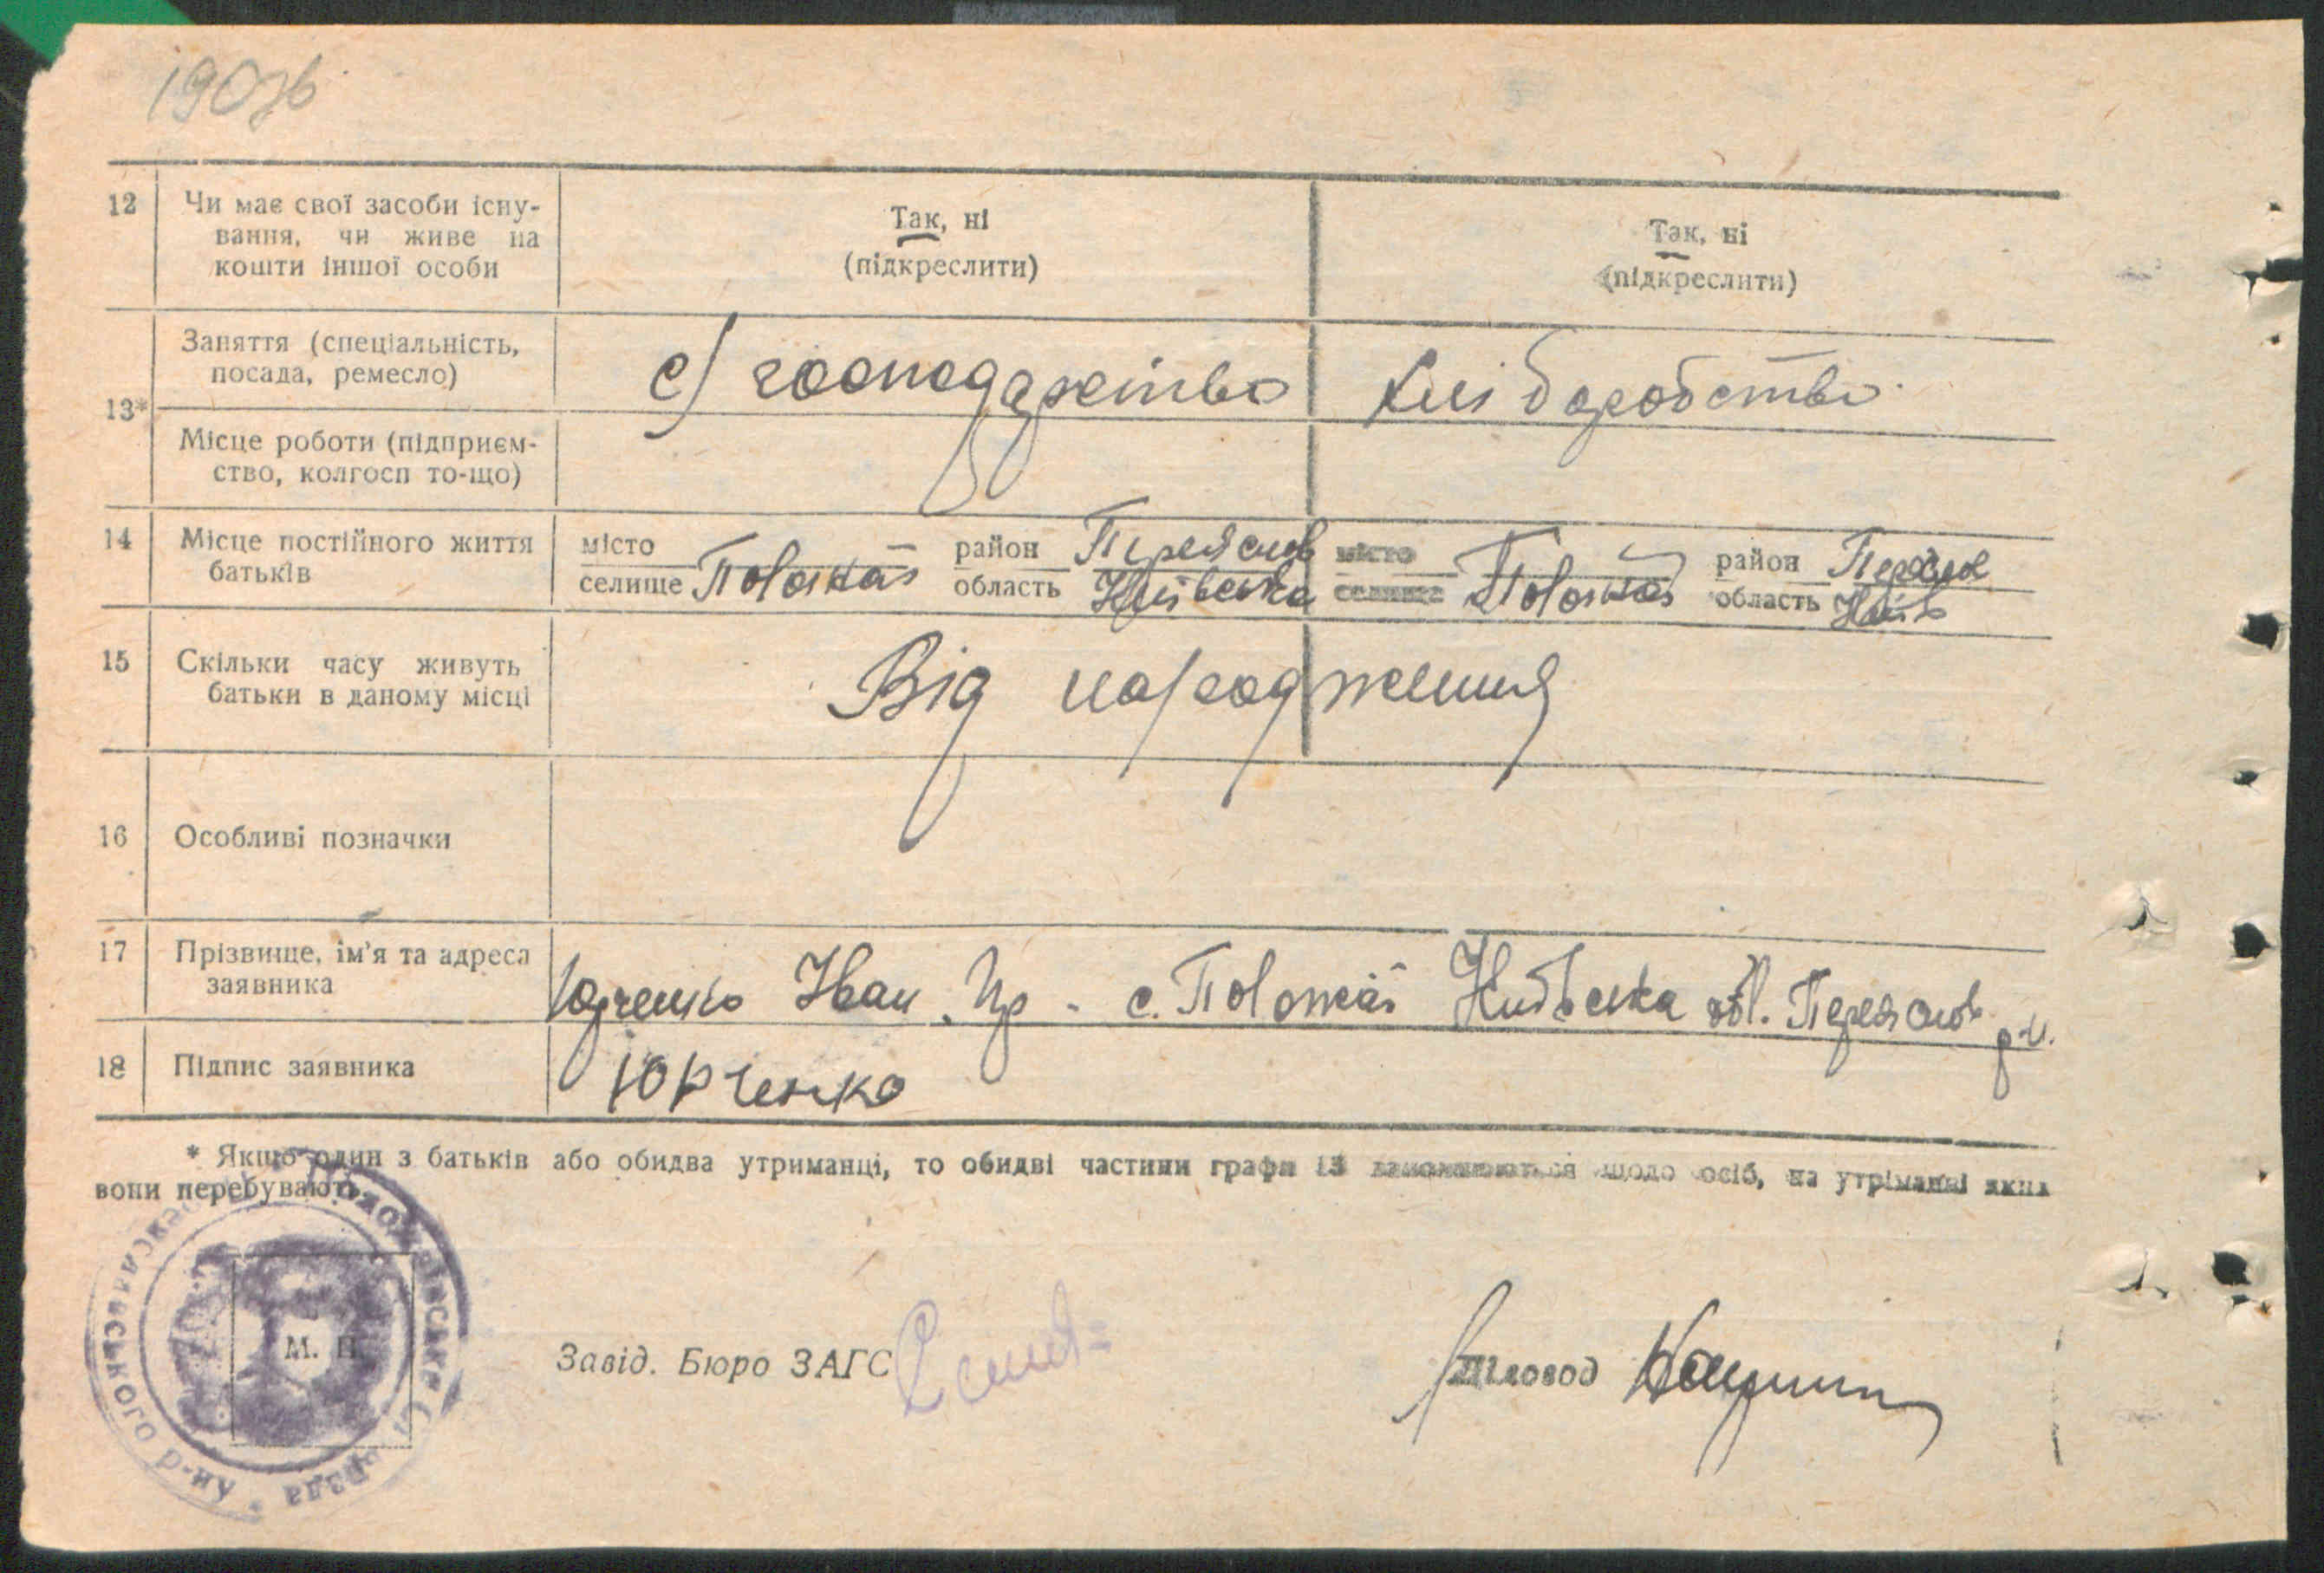 190зв
12 Чи має свої засоби існу-
вання, чи живе на
кошти іншої особи
Так, ні
(підкреслити)
Так, ні
(підкреслити)
13*
Заняття (спеціальність,
посада, ремесло)
с/господарство
Хліборобство
Місце роботи (підприєм-
ство, колгосп то-що)
14 Місце постійного життя
батьків
місто
селище Положаї
район Переяслов
область Київська
місто
селище Положаї
район Переяслов
область Київ
15 Скільки часу живуть
батьки в даному місці
Від народження
16 Особливі позначки
17 Прізвище, ім'я та адреса
заявника
Юрченко Іван Пр - с. Положаї Київська обл. Переяслов р-н.
18 Підпис заявника
Юрченко
* Якщо один з батьків або обидва утриманці, то обидві частини графи 13 заповнюються щодо осіб, на утриманні яких
вони перебувають.
М. П.
ського р-ну
Завід. Бюро ЗАГС
Діловод